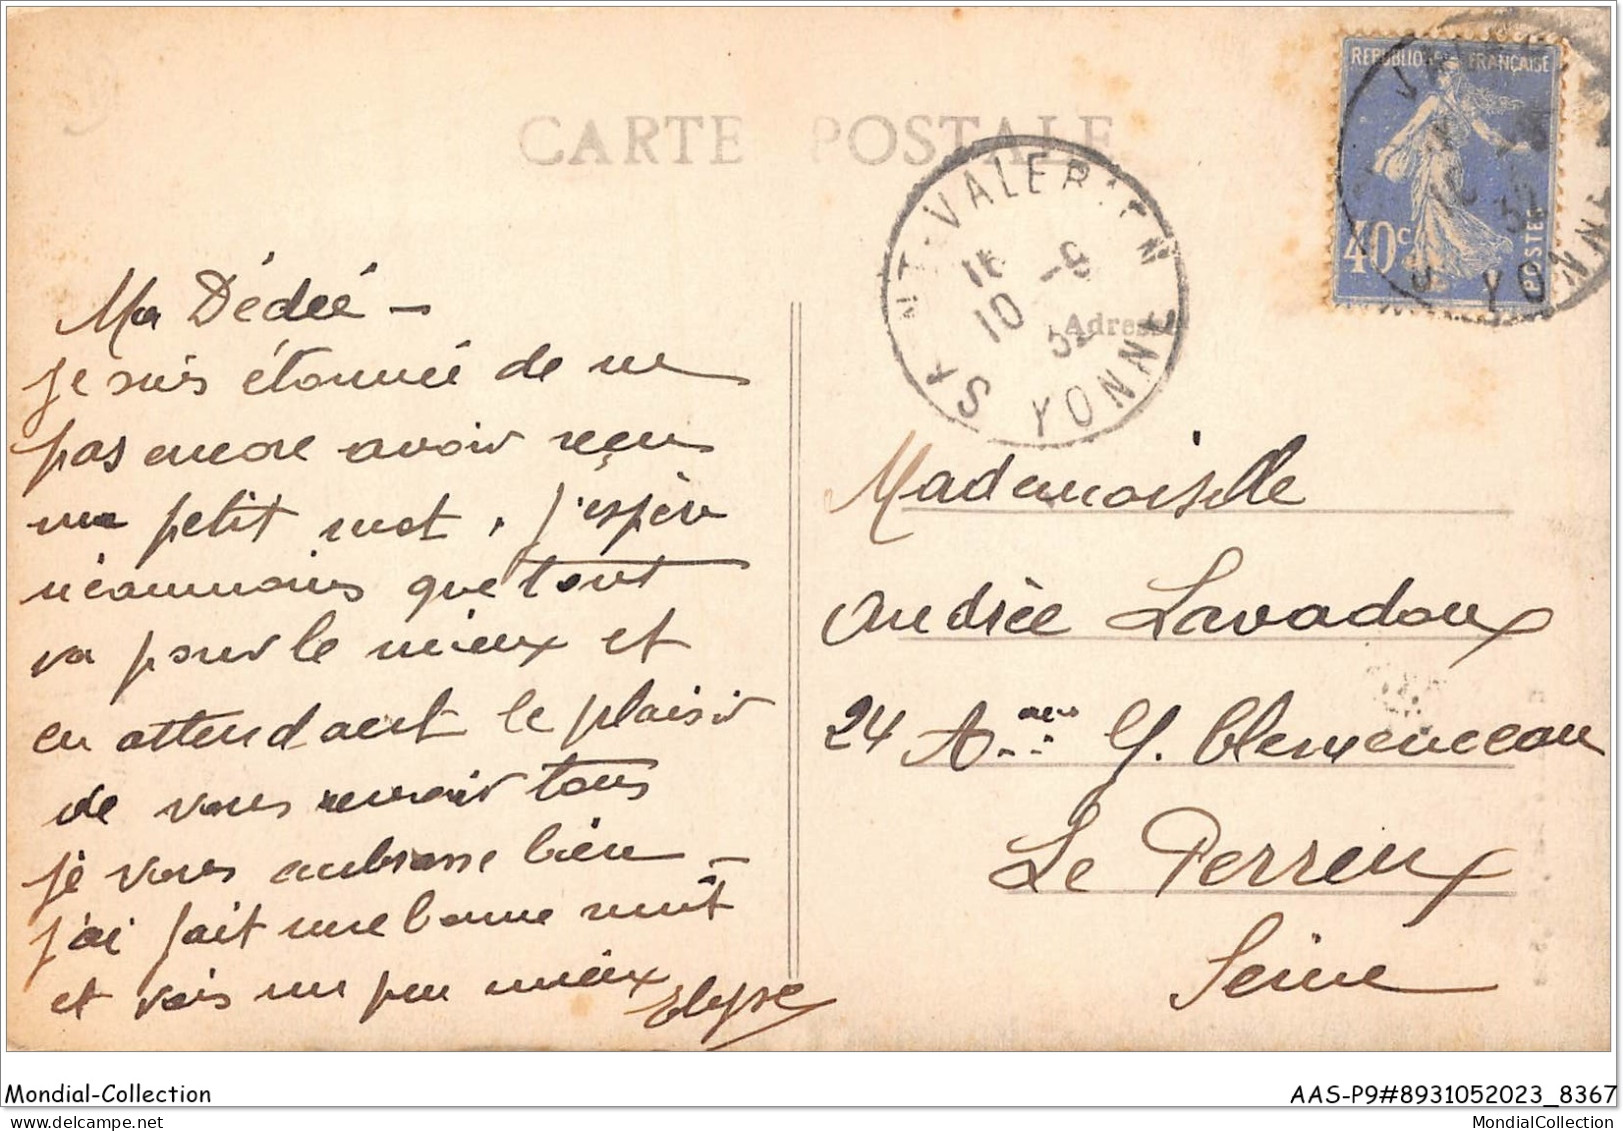 CARTE POSTALE
REPUBLIQUE FRANÇAISE
40c
POSTES
YONNE
ST VALERIEN
16
10 -9
32
YONNE
Adresse
Ma Dédée –
je suis étonnée de ne
pas encore avoir reçu
un petit mot, j'espère
néanmoins que tout
va pour le mieux et
en attendant le plaisir
de vous revoir tous
je vous embrasse bien –
j'ai fait une bonne nuit
et vais un peu mieux
Mademoiselle
Andrée Lavadoux
24 G. Clemenceau
Le Perreux
Seine
Mondial-Collection
AAS-P9##8931052023_8367
MondialCollection